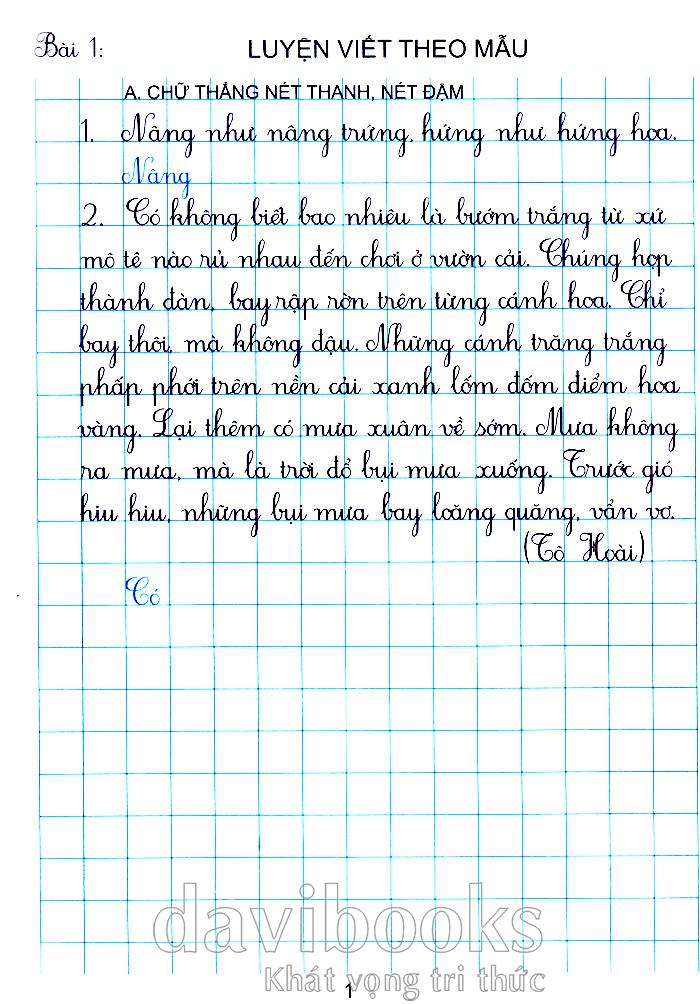 Bài 1: LUYỆN VIẾT THEO MẪU
A. CHỮ THẲNG NÉT THANH, NÉT ĐẬM
1. Nâng như nâng trứng, hứng như hứng hoa.
Nâng
2. Có không biết bao nhiêu là bướm trắng từ xứ
mô tê nào rủ nhau đến chơi ở vườn cải. Chúng họp
thành đàn, bay rập rờn trên từng cánh hoa. Chỉ
bay thôi, mà không đậu. Những cánh trăng trắng
phấp phới trên nền cải xanh lốm đốm điểm hoa
vàng. Lại thêm có mưa xuân về sớm. Mưa không
ra mưa, mà là trời đổ bụi mưa xuống. Trước gió
hiu hiu, những bụi mưa bay loăng quăng, vẩn vơ.
(Tô Hoài)
Có
davibooks
Khát vọng tri thức
1